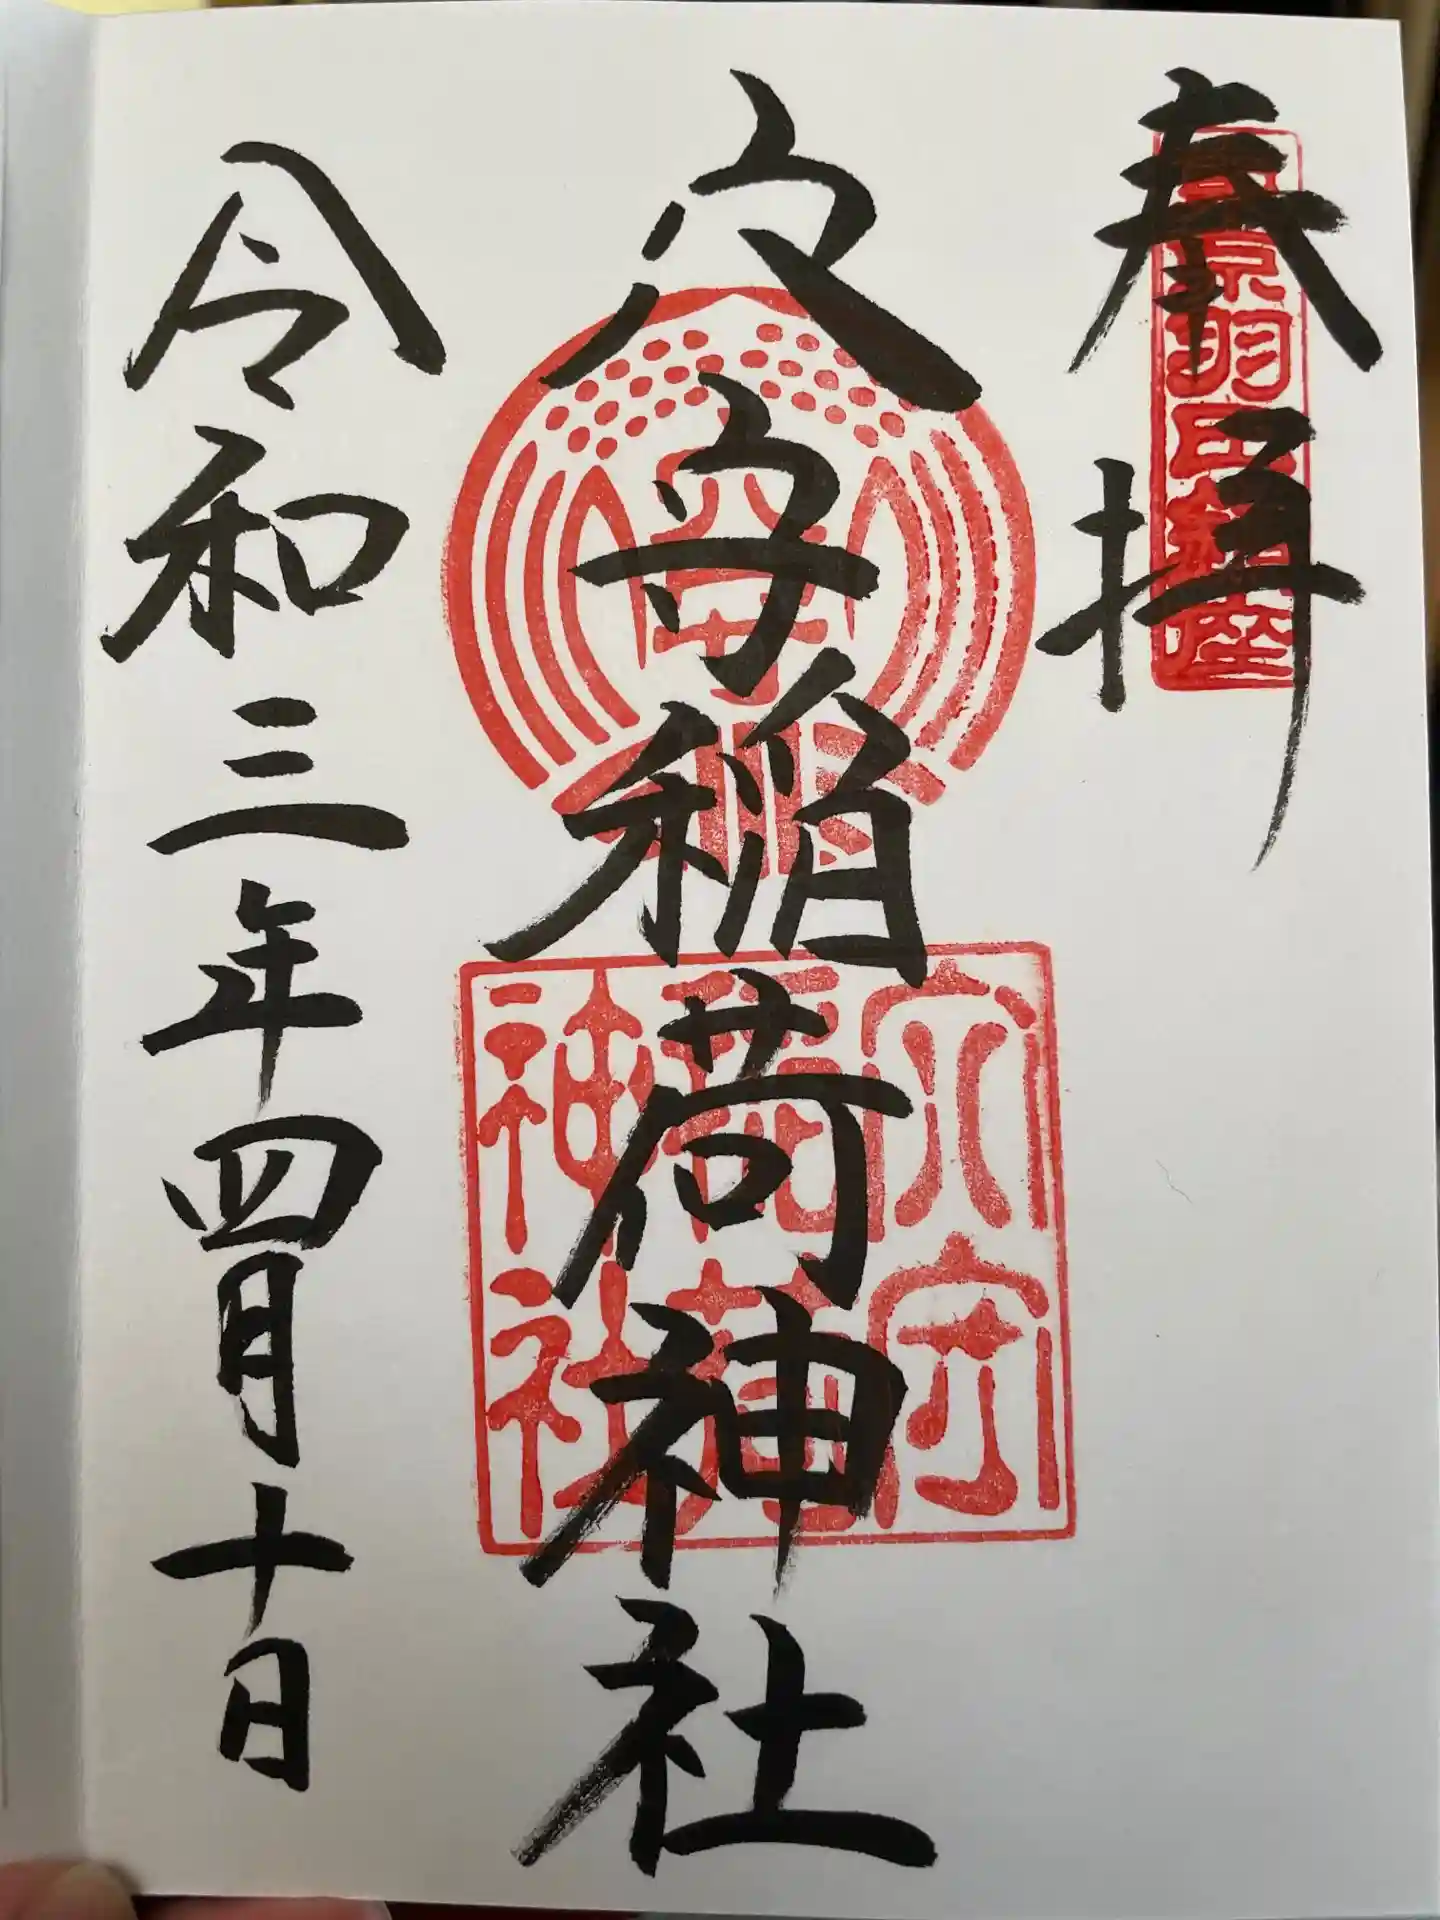 奉拝
東京羽田鎮座
穴守稲荷神社
穴守
穴守
稲荷
神社
令和三年四月十日